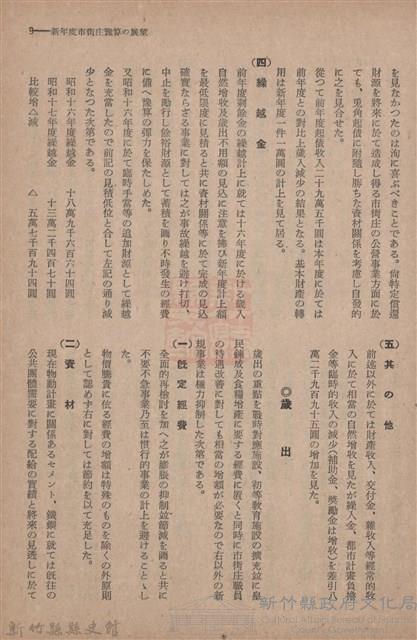 9——新年度市街庄豫算の展望
を見なかつたのは洵に喜ぶべきことである。尙特定償還
財源を將來に於て造成し得る市街庄の公營事業方面に於
ても、兎角起債に附隨し勝ちな資材關係を考慮し自發的
に之を見合せた。
從つて前年度起債收入二十九萬五千圓は本年度に於ては
前年度との對比上歲入減少の結果となる。基本財産の轉
用は新年度一件一萬圓の計上を見て居る。
(四) 繰越金
前年度剩餘金の繰越計上に就ては十六年度に於ける歲入
自然增收及歲出不用額の見込に注意を拂ひ新年度計上額
を最低限度に見積ると共に資材關係等に於て完成の見込
確實ならざる事業に對しては之が事故繰越を避け打切、
中止を勵行し餘裕財源として蓄積を圖り不時發生の經費
に備へ豫算の彈力を保たしめた。
又昭和十六年度に於て臨時手當等の追加財源として繰越
金を充當したので前記の見積低位と合して左記の通り減
少となつた次第である。
昭和十六年度繰越金 十八萬九千六百六十四圓
昭和十七年度繰越金 十三萬二千四百七十圓
比較增△減 △ 五萬七千百九十四圓
(五) 其の他
前述以外に於ては財產收入、交付金、雜收入等經常的收
入に於て相當の自然增收を見たが繰入金、都市計畫負擔
金等臨時的收入の減少(補助金、獎勵金は增收)を差引八
萬二千九百九十五圓の增加を見た。
◎歲出
歲出の重點を戰時對應施設、初等教育施設の擴充並に皇
民鍊成及食糧增產に要する經費に置くと同時に市街庄職員
の待遇改善に對しても相當の增額が必要なので右以外の新
規事業は極力抑制した次第である。
(一) 既定經費
全面的再檢討を加へ之が膨脹の抑制並節減を圖ると共に
不要不急事業乃至は慣行的事業の計上を避けることゝし
た。
物價騰貴に依る經費の增額は特殊のものを除くの外原則
として認めず右に對しては節約を以て充足した。
(二) 資材
現在物動計畫に關係あるセメント、鐵鋼に就ては旣往の
公共團體需要に對する配給の實績と將來の見透しに於て
新竹縣縣史館
新竹縣政府文化局
Cultural Affairs Bureau of Hsinchu County